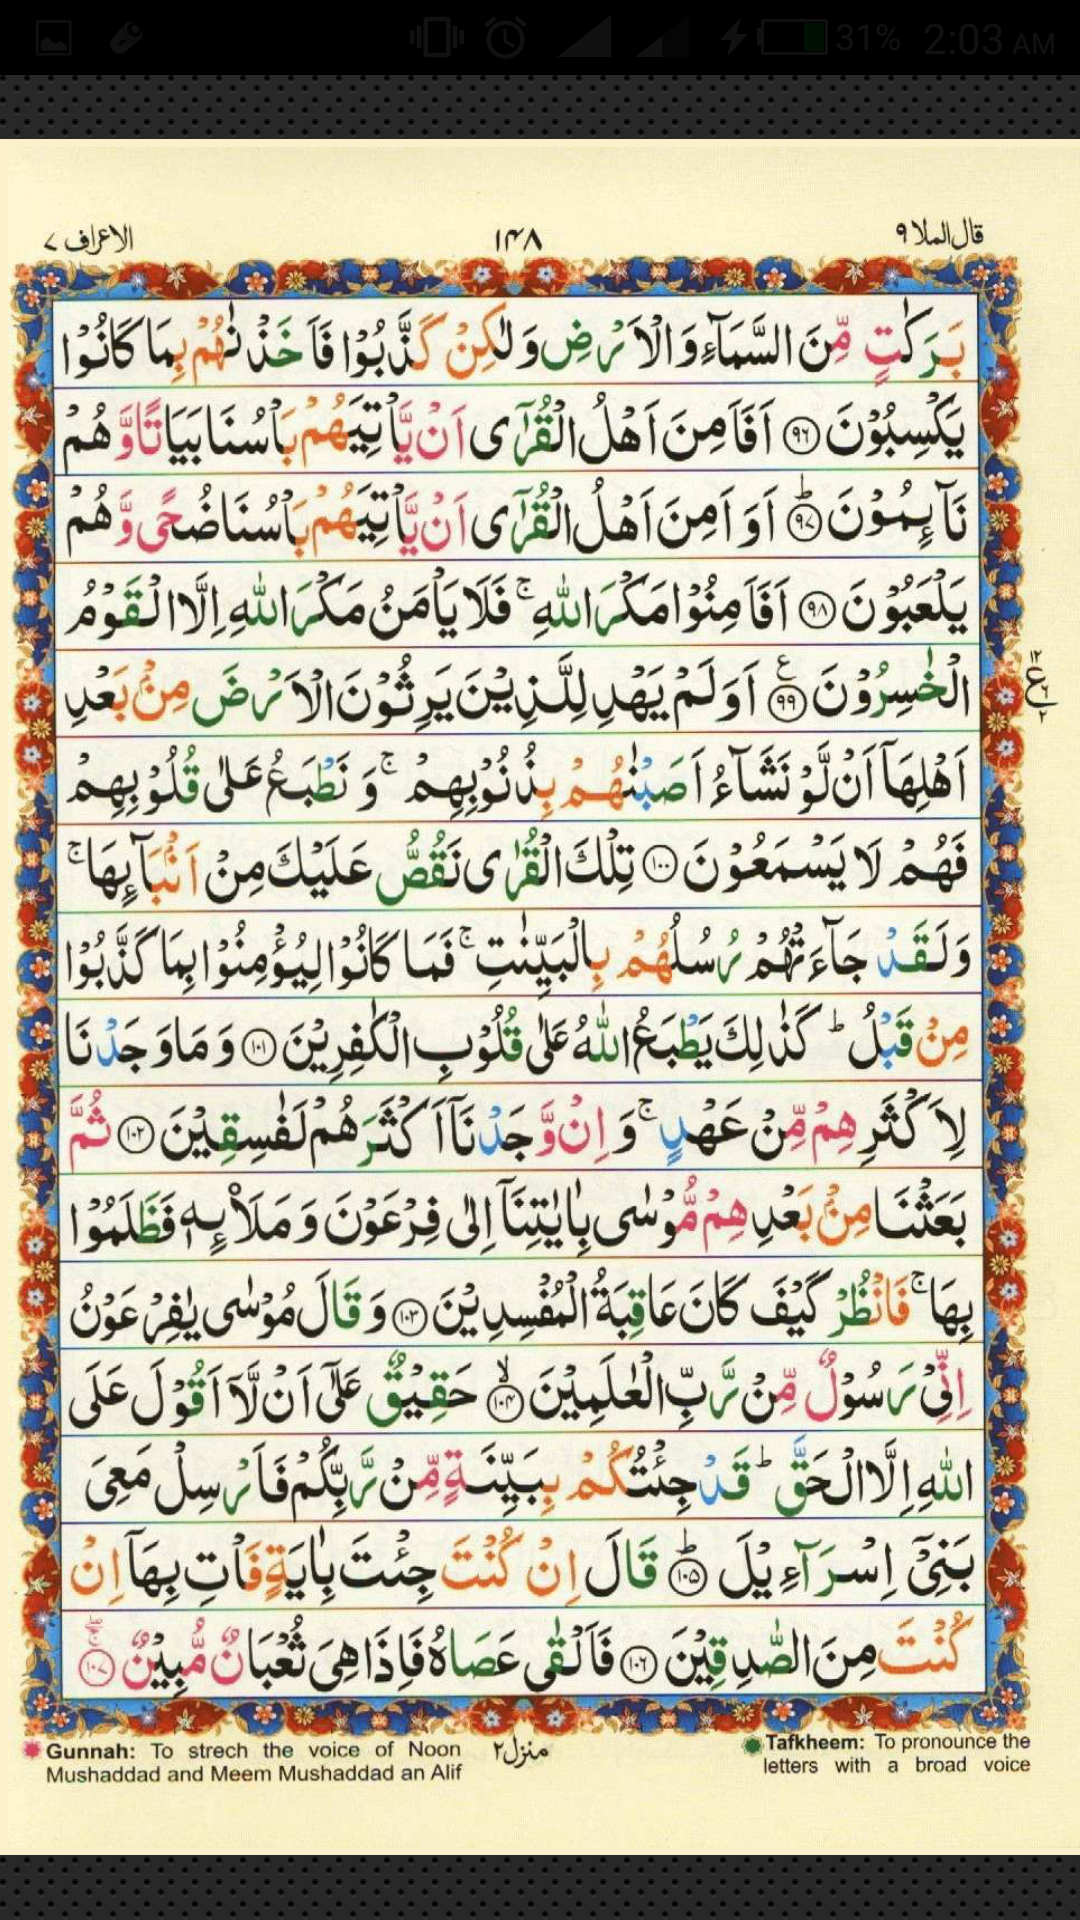 31% 2:03 AM
قال الملا ٩ ١٤٨ الاعراف ٧
بَرَكٰتٍ مِّنَ السَّمَآءِ وَالْاَرْضِ وَلٰكِنْ كَذَّبُوْا فَاَخَذْنٰهُمْ بِمَا كَانُوْا
يَكْسِبُوْنَ ٩٦ اَفَاَمِنَ اَهْلُ الْقُرٰٓى اَنْ يَّاْتِيَهُمْ بَاْسُنَا بَيَاتًا وَّهُمْ
نَآئِمُوْنَ ؕ ٩٧ اَوَاَمِنَ اَهْلُ الْقُرٰٓى اَنْ يَّاْتِيَهُمْ بَاْسُنَا ضُحًى وَّهُمْ
يَلْعَبُوْنَ ٩٨ اَفَاَمِنُوْا مَكْرَ اللّٰهِ ۚ فَلَا يَاْمَنُ مَكْرَ اللّٰهِ اِلَّا الْقَوْمُ
الْخٰسِرُوْنَ ع ٩٩ اَوَلَمْ يَهْدِ لِلَّذِيْنَ يَرِثُوْنَ الْاَرْضَ مِنْۢ بَعْدِ
١٢ ع ٦ ٢
اَهْلِهَاۤ اَنْ لَّوْ نَشَآءُ اَصَبْنٰهُمْ بِذُنُوْبِهِمْ ۚ وَنَطْبَعُ عَلٰى قُلُوْبِهِمْ
فَهُمْ لَا يَسْمَعُوْنَ ١٠٠ تِلْكَ الْقُرٰى نَقُصُّ عَلَيْكَ مِنْ اَنْۢبَآئِهَا ۚ
وَلَقَدْ جَآءَتْهُمْ رُسُلُهُمْ بِالْبَيِّنٰتِ ۚ فَمَا كَانُوْا لِيُؤْمِنُوْا بِمَا كَذَّبُوْا
مِنْ قَبْلُ ؕ كَذٰلِكَ يَطْبَعُ اللّٰهُ عَلٰى قُلُوْبِ الْكٰفِرِيْنَ ١٠١ وَمَا وَجَدْنَا
لِاَكْثَرِهِمْ مِّنْ عَهْدٍ ۚ وَاِنْ وَّجَدْنَاۤ اَكْثَرَهُمْ لَفٰسِقِيْنَ ١٠٢ ثُمَّ
بَعَثْنَا مِنْۢ بَعْدِهِمْ مُّوْسٰى بِاٰيٰتِنَاۤ اِلٰى فِرْعَوْنَ وَمَلَا۟ئِهٖ فَظَلَمُوْا
بِهَا ۚ فَانْظُرْ كَيْفَ كَانَ عَاقِبَةُ الْمُفْسِدِيْنَ ١٠٣ وَقَالَ مُوْسٰى يٰفِرْعَوْنُ
اِنِّيْ رَسُوْلٌ مِّنْ رَّبِّ الْعٰلَمِيْنَ ۙ ١٠٤ حَقِيْقٌ عَلٰٓى اَنْ لَّاۤ اَقُوْلَ عَلَى
اللّٰهِ اِلَّا الْحَقَّ ؕ قَدْ جِئْتُكُمْ بِبَيِّنَةٍ مِّنْ رَّبِّكُمْ فَاَرْسِلْ مَعِيَ
بَنِيْۤ اِسْرَآءِيْلَ ؕ ١٠٥ قَالَ اِنْ كُنْتَ جِئْتَ بِاٰيَةٍ فَاْتِ بِهَاۤ اِنْ
كُنْتَ مِنَ الصّٰدِقِيْنَ ١٠٦ فَاَلْقٰى عَصَاهُ فَاِذَا هِيَ ثُعْبَانٌ مُّبِيْنٌ ١٠٧
Gunnah: To strech the voice of Noon
Mushaddad and Meem Mushaddad an Alif
منزل ٢
Tafkheem: To pronounce the
letters with a broad voice